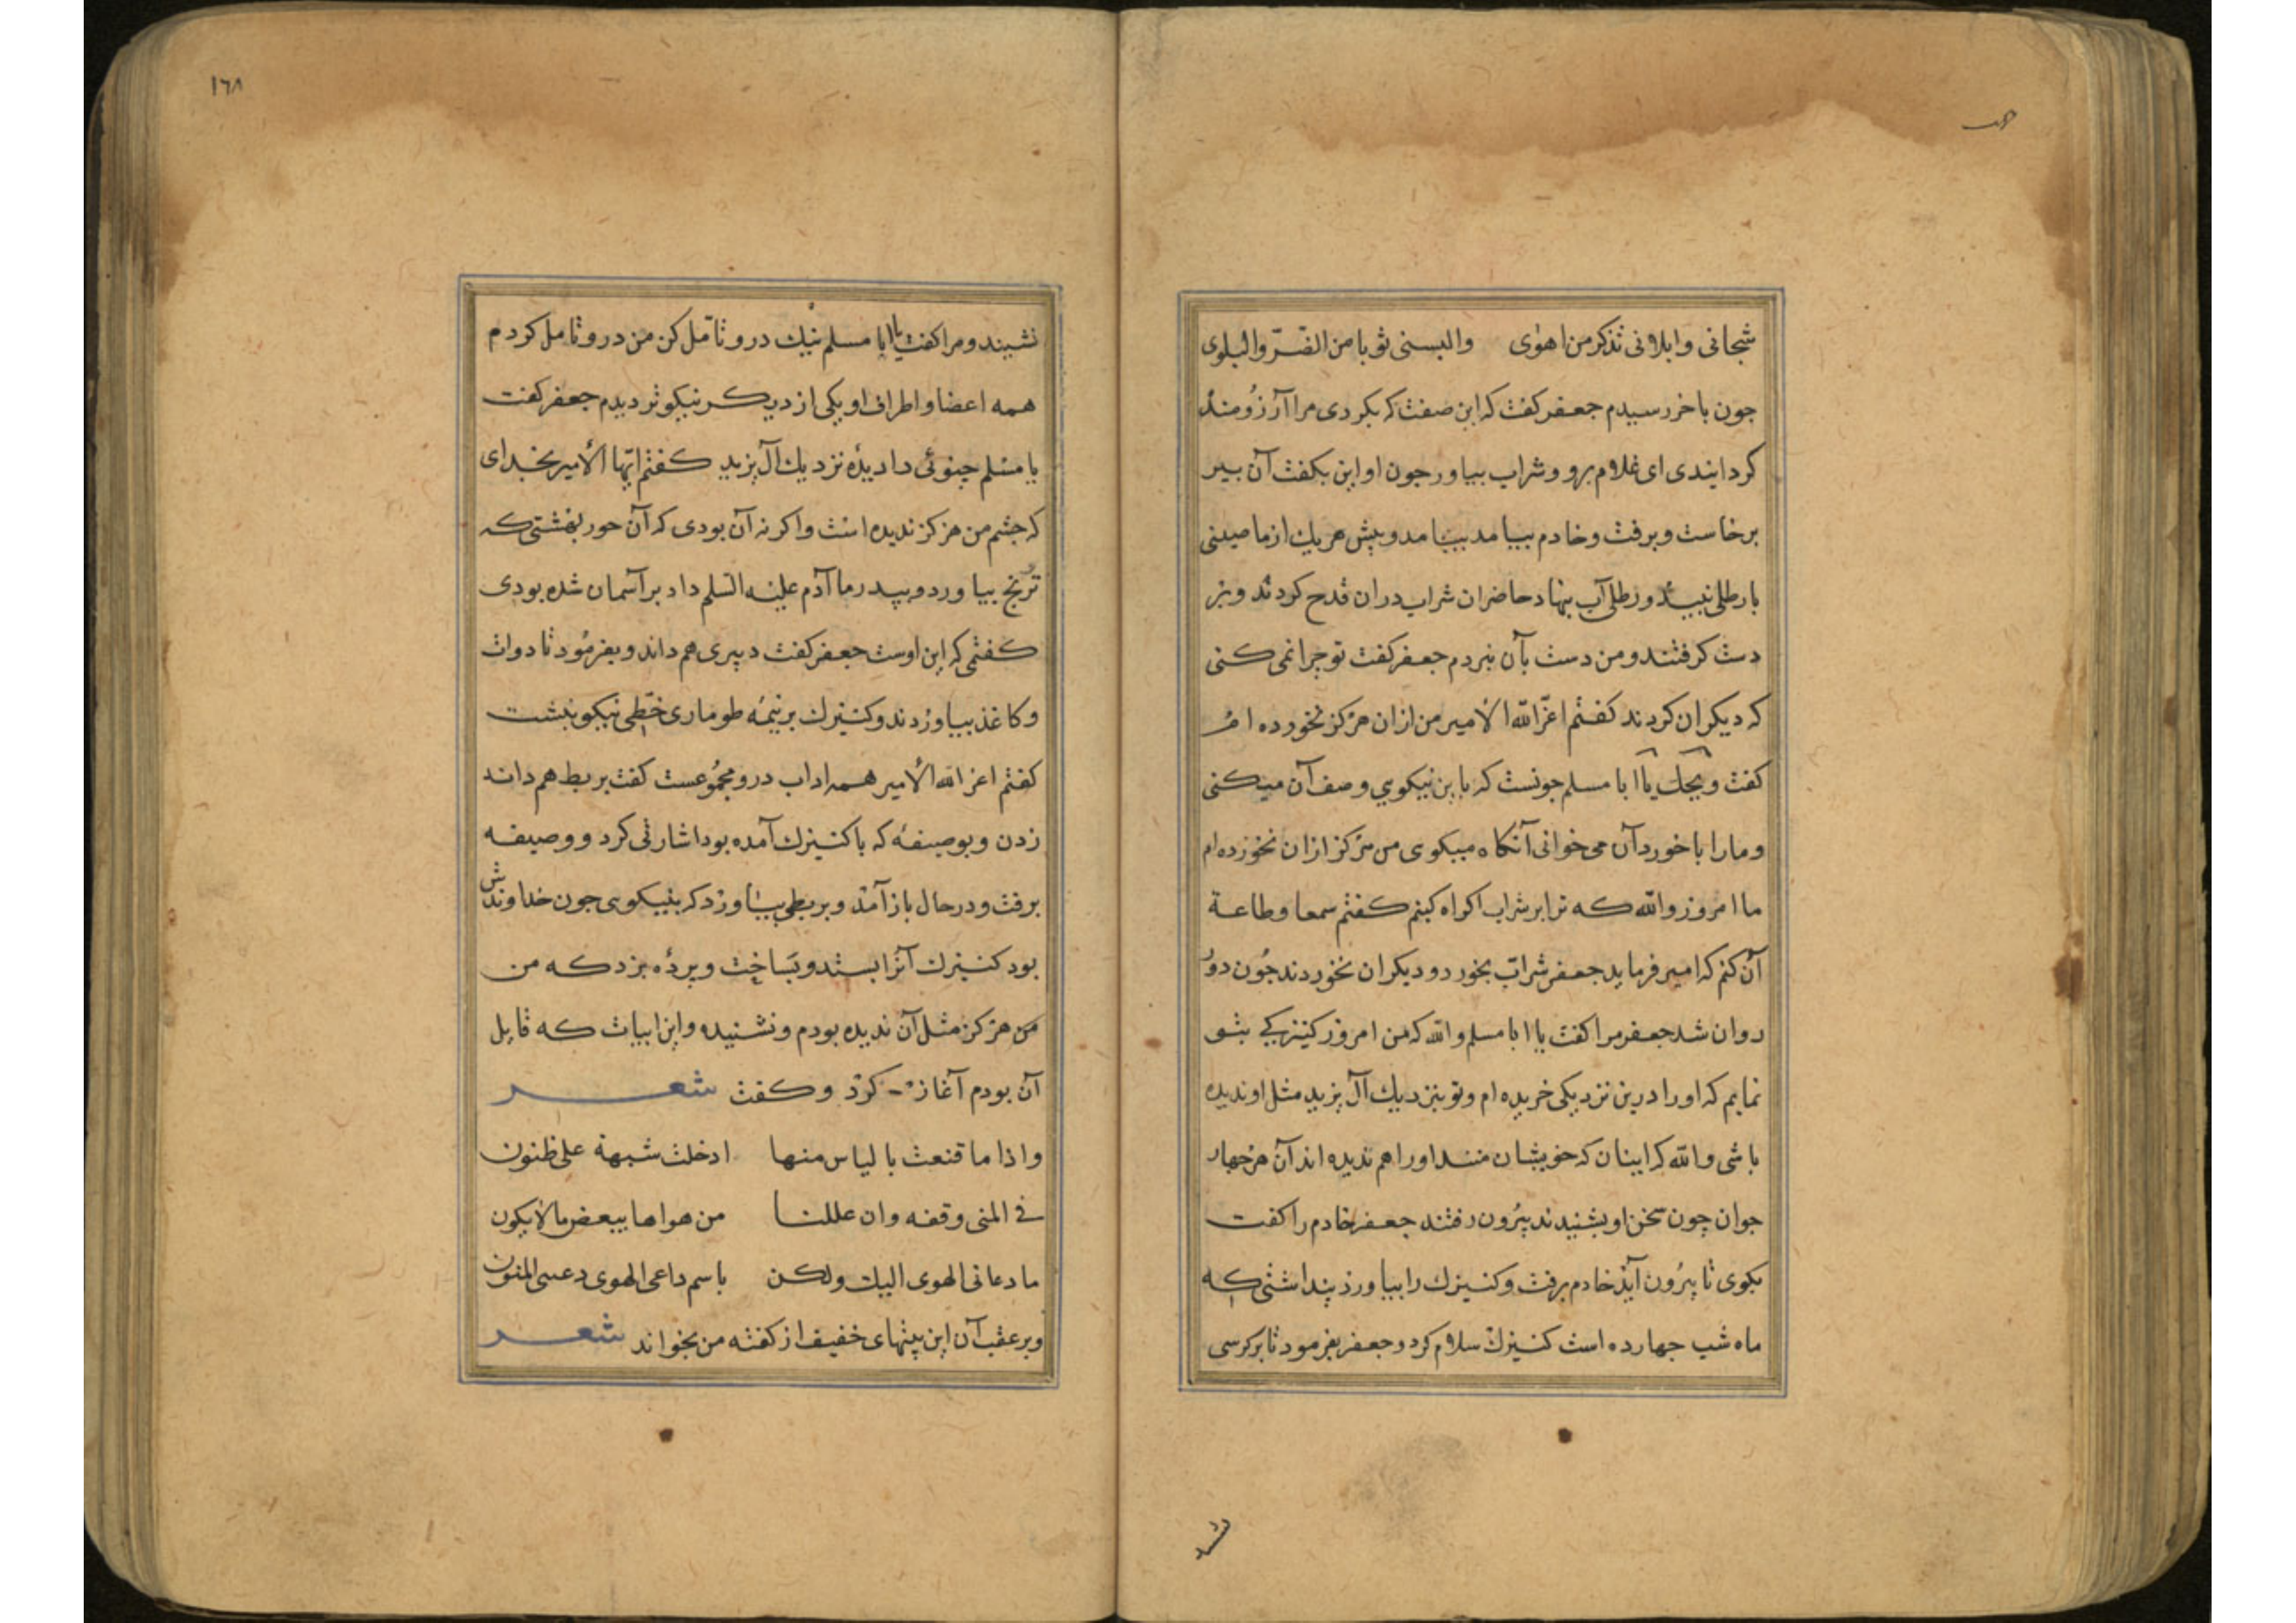 شجانی وابلانی تذکر من اهوی والبسنی ثوبا من الضرّ والبلوی
جون باخر رسیدم جعفر کفت که این صفت که بکردی مرا آرزومند
کردایندی ای غلام برو و شراب بیاور جون او این بکفت آن پیر
برخاست و برفت و خادم بیامد بیامد و پیش هر یك از ما صینی
با رطلی نبیذ و رطلی آب بنهاد حاضران شراب در ان قدح کردند و بر
دست کرفتند و من دست بآن نبردم جعفر کفت تو جرا نمی کنی
که دیکران کردند کفتم اعزّ الله الامیر من از ان هرکز نخورده ام
کفت ویحك یا ابا مسلم جونست که باین نیکویی وصف آن میکنی
و ما را با خورد آن می خوانی آنکاه میکوی من هرکز از ان نخورده ام
ما امروز والله که ترا بر شراب اکراه کینم کفتم سمعا وطاعة
آن کنم که امیر فرماید جعفر شراب بخورد و دیکران نخوردند جون دور
روان شد جعفر مرا کفت یا ابا مسلم والله که من امروز کنیزکی بتو
نمایم که او را درین نزدیکی خریده ام و تو بنزدیك آل یزید مثل او ندیده
باشی والله که اینان که خویشان منند او را هم ندیده اند آن هر جهار
جوان چون سخن او بشنیدند بیرون رفتند جعفر خادم را کفت
بکوی تا بیرون آید خادم برفت و کنیزك را بیاورد پنداشتی که
ماه شب جهارده است کنیزك سلام کرد و جعفر بفرمود تا بر کرسی
نشیند
١٦٨
نشیند و مرا کفت یا ابا مسلم نیك درو تأمّل کن من درو تامل کردم
همه اعضا و اطراف او یکی از دیکر نیکوتر دیدم جعفر کفت
یا مسلم چنوئی دا دیده نزدیك آل یزید کفتم ایّها الأمیر بخدای
که جشم من هرکز ندیده است واکر نه آن بودی که آن حور بهشتی که
ترنج بیاورد و بپدر ما آدم علیه السلم داد بر آسمان شده بودی
کفتمی که این اوست جعفر کفت دبیری هم داند و بفرمود تا دوات
و کاغذ بیاوردند و کنیزك بر نیمه طوماری خطی نیکو بنبشت
کفتم اعز الله الأمیر همه اداب درو مجموعست کفت بربط هم داند
زدن و بوصیفه که با کنیزك آمده بود اشارتی کرد و وصیفه
برفت و در حال باز آمد و بربطی بیاورد که بنیکویی جون خداوندش
بود کنیزك آنرا بستد و بساخت و پرده بزد که من
من هرکز مثل آن ندیده بودم و نشنیده و این ابیات که قایل
آن بودم آغاز کرد و کفت شعر
واذا ما قنعت بالیاس منها ادخلت شبهة علی ظنون
فی المنی وقفه وان عللنا من هواها ببعض ما لا یکون
ما دعانی الهوی الیك ولکن باسم داعی الهوی دعی المنون
و بر عقب آن این بیتهای خفیف از کفته من بخواند شعر